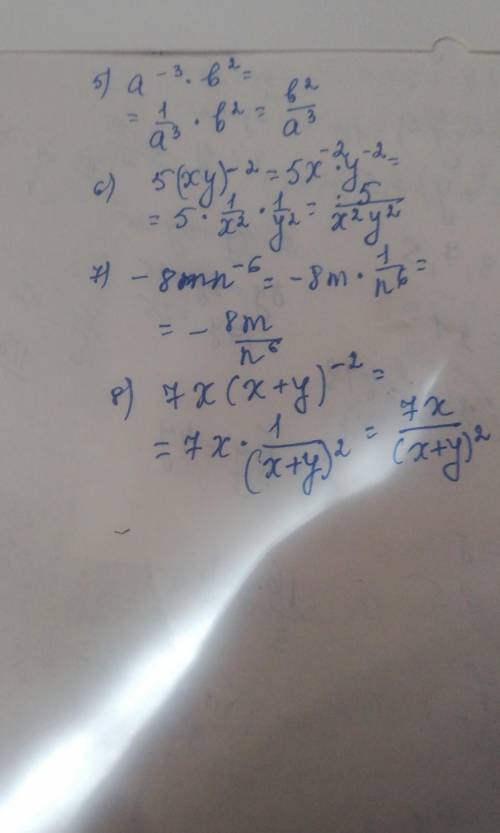 5) a⁻³ · b² =
= 1/a³ · b² = b²/a³
6) 5(xy)⁻² = 5x⁻² · y⁻² =
= 5 · 1/x² · 1/y² = 5/x²y²
7) -8mn⁻⁶ = -8m · 1/n⁶ =
= - 8m/n⁶
8) 7x(x+y)⁻² =
= 7x · 1/(x+y)² = 7x/(x+y)²